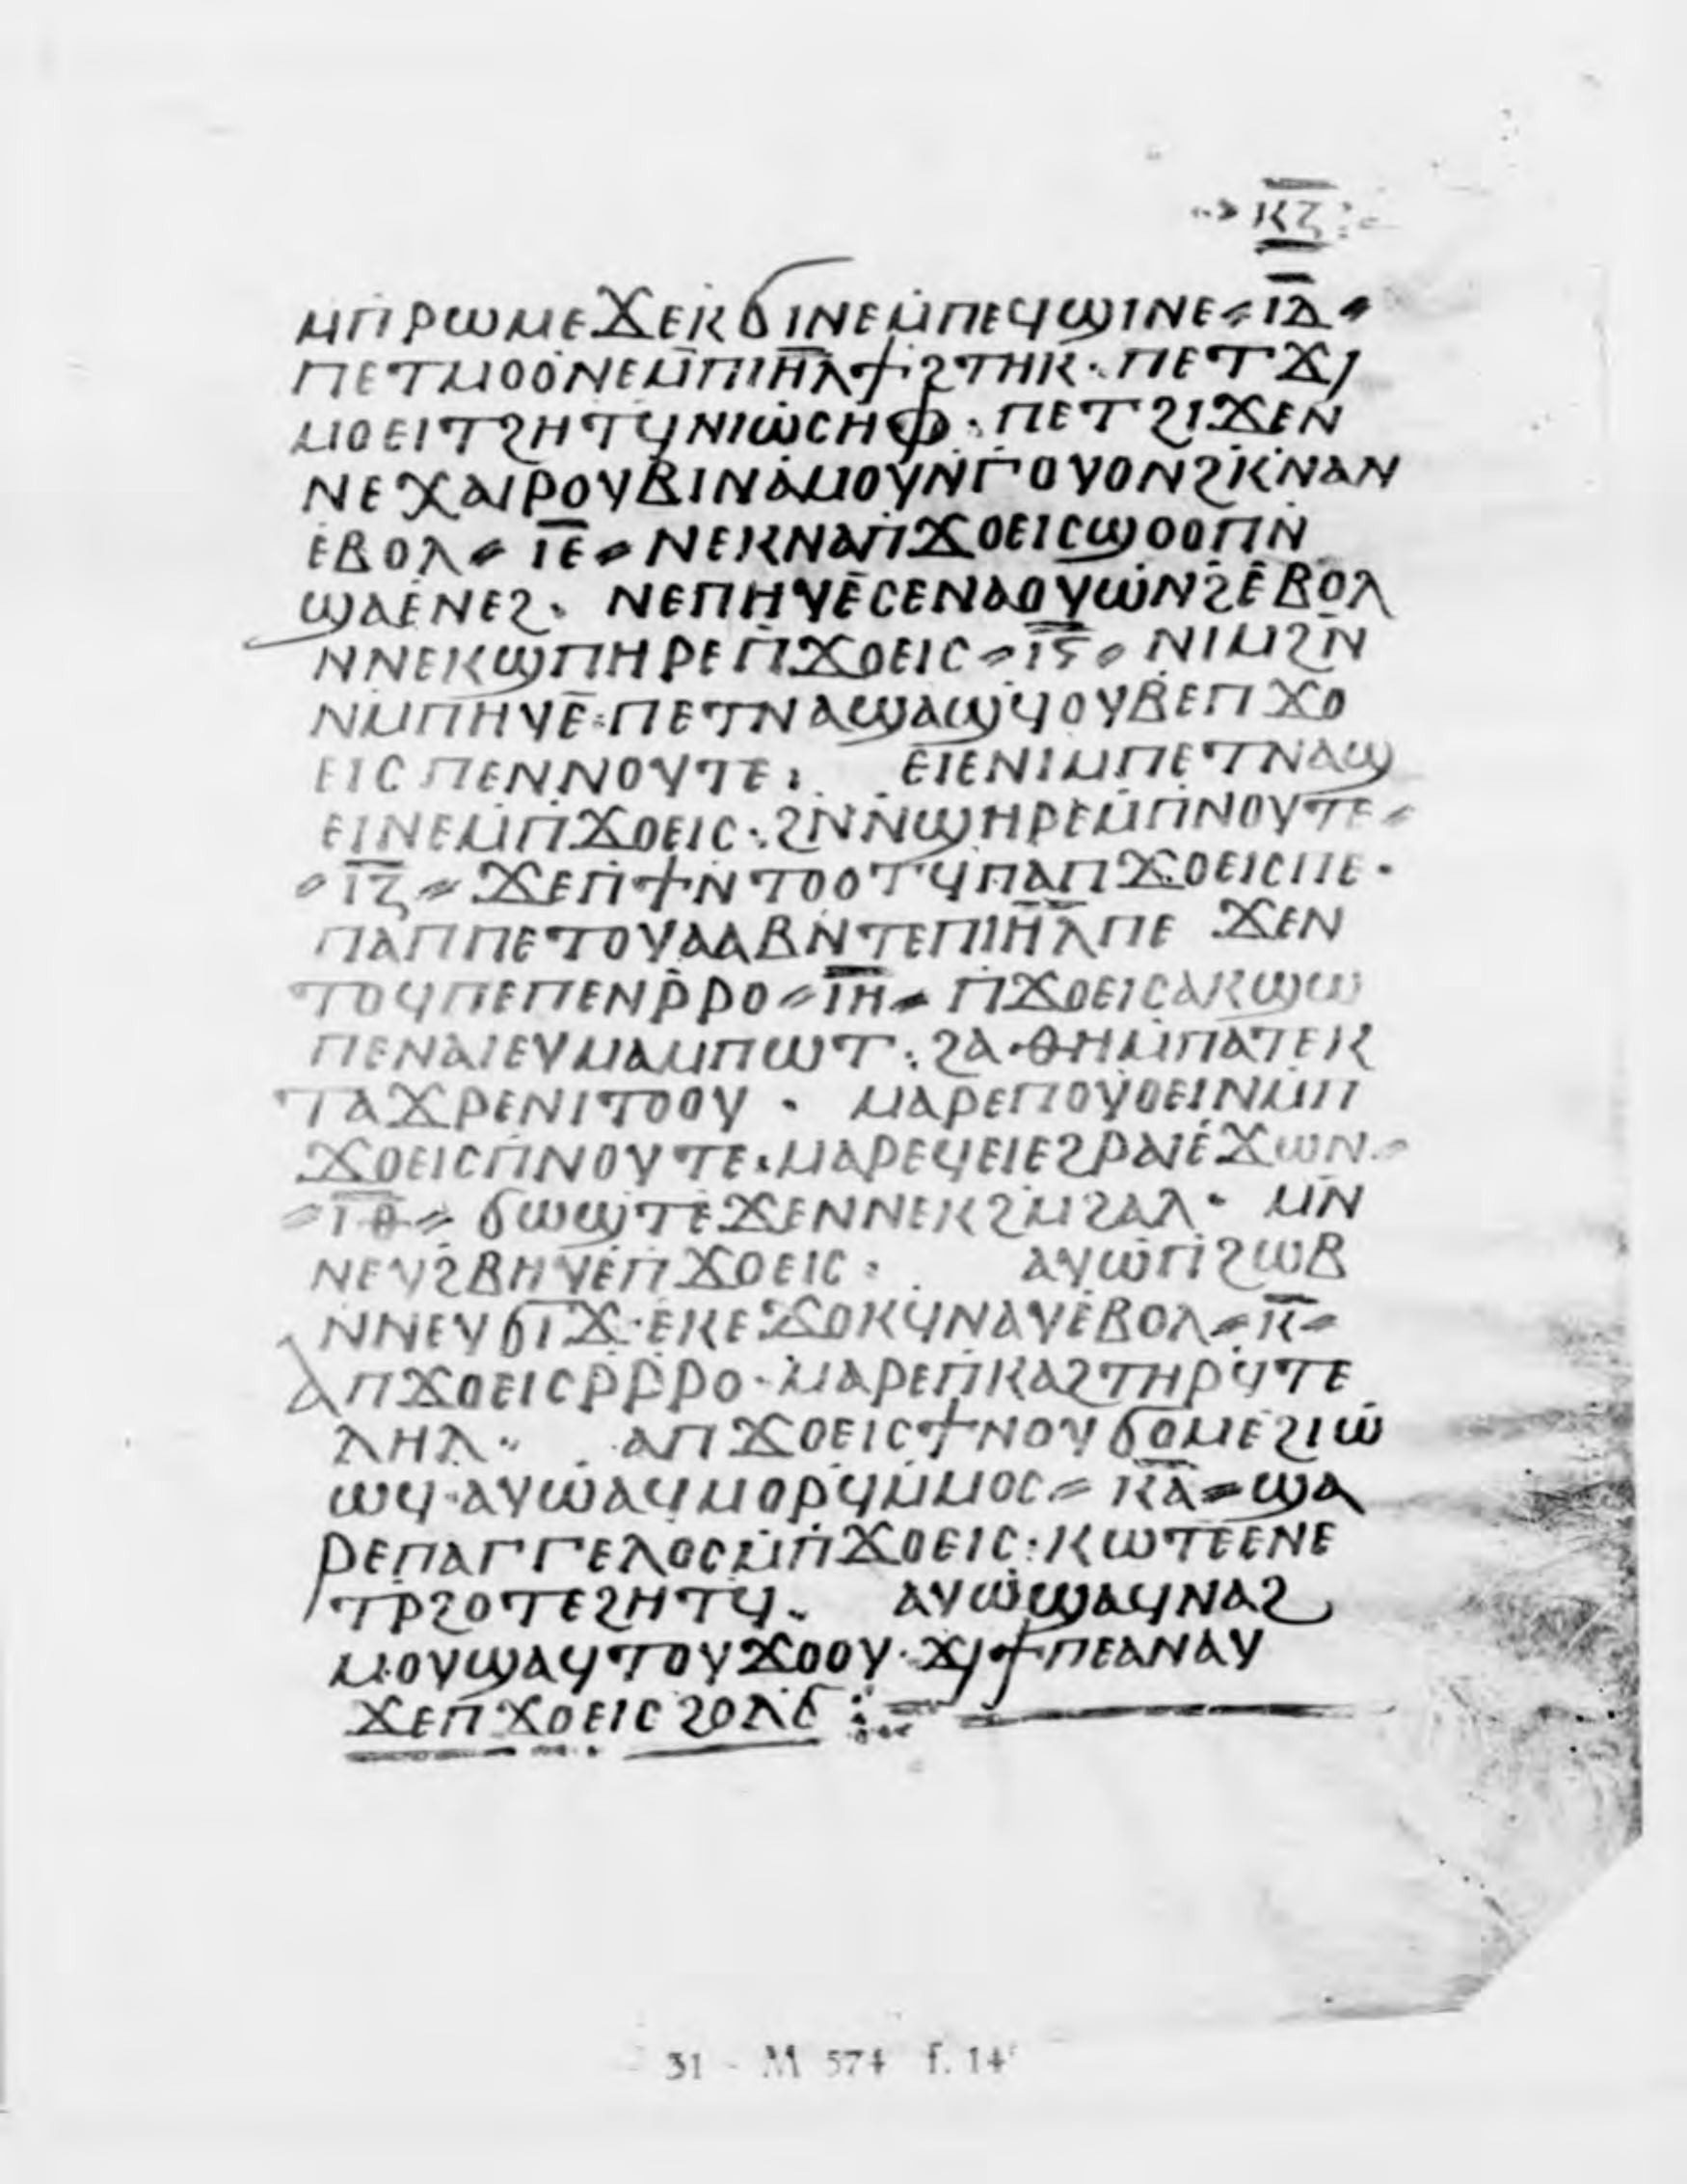 ⲕⲍ
ⲙⲡⲣⲱⲙⲉϫⲉⲕϭⲓⲛⲉⲙⲡⲉϥϣⲓⲛⲉ ⲓⲇ
ⲡⲉⲧⲙⲟⲟⲛⲉⲙⲡⲓⲏⲗϯϩⲧⲏⲕ· ⲡⲉⲧϫⲓ
ⲙⲟⲉⲓⲧϩⲏⲧϥⲛⲓⲱⲥⲏⲫ: ⲡⲉⲧϩⲓϫⲉⲛ
ⲛⲉⲭⲁⲓⲣⲟⲩⲃⲓⲛⲁⲙⲟⲩⲛⲅⲟⲩⲟⲛϩⲕⲛⲁⲛ
ⲉⲃⲟⲗ ⲓⲉ ⲛⲉⲕⲛⲁⲡϫⲟⲉⲓⲥϣⲟⲟⲡⲛ
ϣⲁⲉⲛⲉϩ· ⲛⲉⲡⲏⲩⲉⲥⲉⲛⲁⲟⲩⲱⲛϩⲉⲃⲟⲗ
ⲛⲛⲉⲕϣⲡⲏⲣⲉⲡϫⲟⲉⲓⲥ ⲓⲋ ⲛⲓⲙϩⲛ
ⲛⲙⲡⲏⲩⲉ: ⲡⲉⲧⲛⲁϣⲁϣϥⲟⲩⲃⲉⲡϫⲟ
ⲉⲓⲥⲡⲉⲛⲛⲟⲩⲧⲉ: ⲉⲓⲉⲛⲓⲙⲡⲉⲧⲛⲁϣ
ⲉⲓⲛⲉⲙⲡϫⲟⲉⲓⲥ: ϩⲛⲛϣⲏⲣⲉⲙⲡⲛⲟⲩⲧⲉ
ⲓⲍ ϫⲉⲡϯⲛⲧⲟⲟⲧϥⲡⲁⲡϫⲟⲉⲓⲥⲡⲉ·
ⲡⲁⲡⲡⲉⲧⲟⲩⲁⲁⲃⲛⲧⲉⲡⲓⲏⲗⲡⲉ ϫⲉⲛ
ⲧⲟϥⲡⲉⲡⲉⲛⲣⲣⲟ ⲓⲏ ⲡϫⲟⲉⲓⲥⲁⲕϣⲱ
ⲡⲉⲛⲁⲓⲉⲩⲙⲁⲙⲡⲱⲧ: ϩⲁⲑⲏⲙⲡⲁⲧⲉⲕ
ⲧⲁϫⲣⲉⲛⲓⲧⲟⲟⲩ· ⲙⲁⲣⲉⲡⲟⲩⲟⲉⲓⲛⲙⲡ
ϫⲟⲉⲓⲥⲡⲛⲟⲩⲧⲉ· ⲙⲁⲣⲉϥⲉⲓⲉϩⲣⲁⲓⲉϫⲱⲛ
ⲓⲑ ϭⲱϣⲧⲉϫⲉⲛⲛⲉⲕϩⲙϩⲁⲗ· ⲙⲛ
ⲛⲉⲩϩⲃⲏⲩⲉⲡϫⲟⲉⲓⲥ: ⲁⲩⲱⲡϩⲱⲃ
ⲛⲛⲉⲩϭⲓϫ· ⲉⲕⲉϫⲟⲕϥⲛⲁⲩⲉⲃⲟⲗ ⲕ
ⲁⲡϫⲟⲉⲓⲥⲣⲣⲣⲟ· ⲙⲁⲣⲉⲡⲕⲁϩⲧⲏⲣϥⲧⲉ
ⲗⲏⲗ· ⲁⲡϫⲟⲉⲓⲥϯⲛⲟⲩϭⲟⲙⲉϩⲓⲱ
ⲱϥ· ⲁⲩⲱⲁϥⲙⲟⲣϥⲙⲙⲟⲥ ⲕⲁ ϣⲁ
ⲣⲉⲡⲁⲅⲅⲉⲗⲟⲥⲙⲡϫⲟⲉⲓⲥ: ⲕⲱⲧⲉⲉⲛⲉ
ⲧⲣϩⲟⲧⲉϩⲏⲧϥ· ⲁⲩⲱϣⲁϥⲛⲁϩ
ⲙⲟⲩϣⲁϥⲧⲟⲩϫⲟⲟⲩ· ϫⲓϯⲡⲉⲁⲛⲁⲩ
ϫⲉⲡϫⲟⲉⲓⲥϩⲟⲗϭ
31 - M 574 f. 14